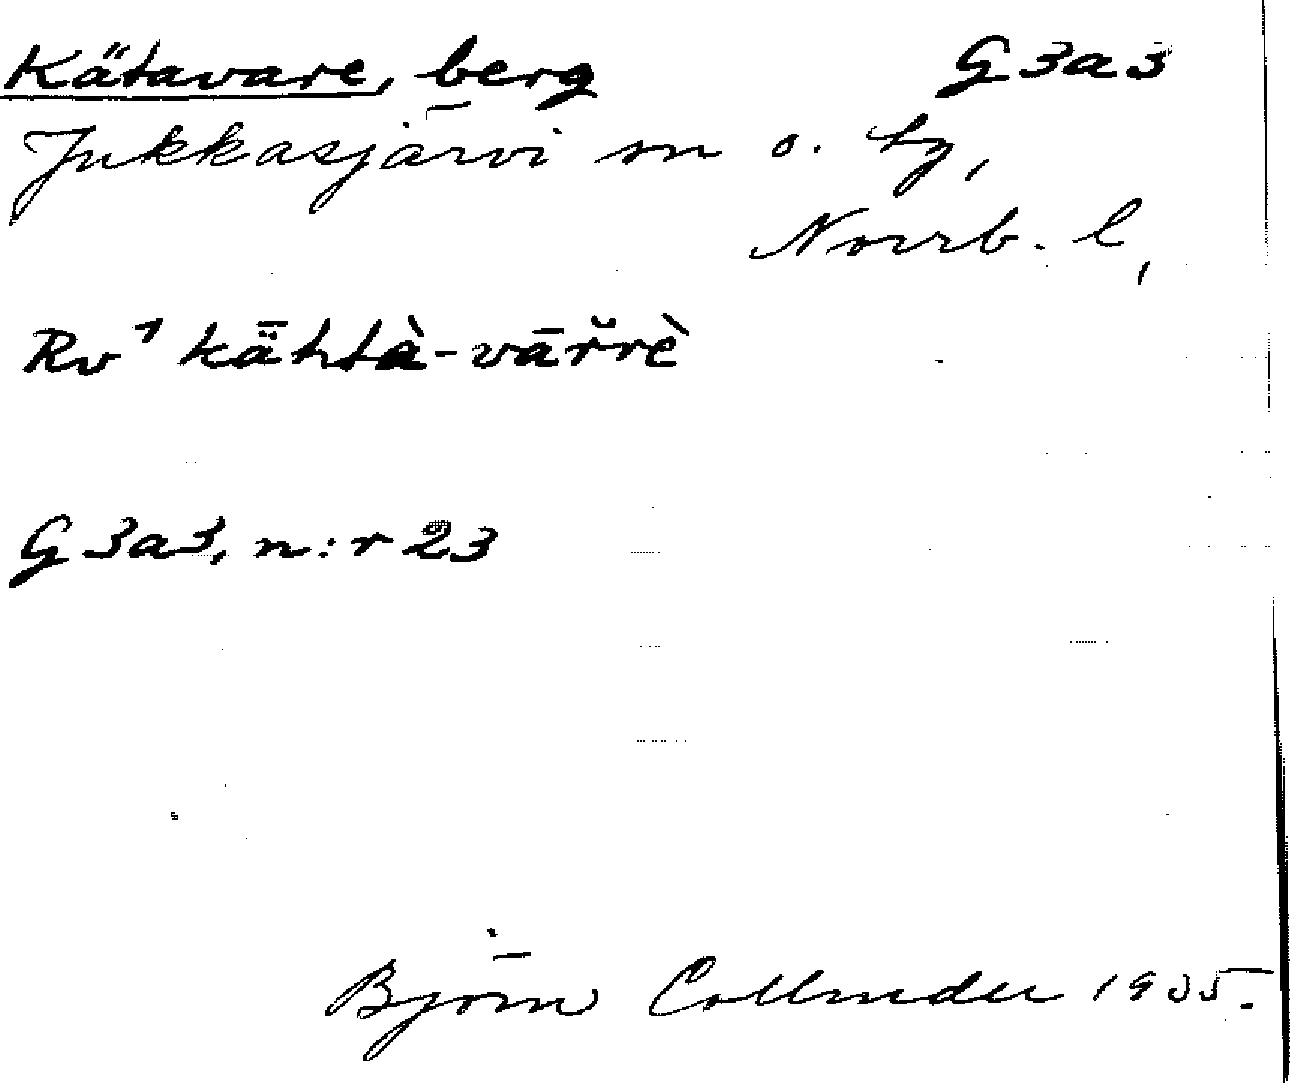 Kätavare, berg G3a3
Jukkasjärvi sn o. tg,
Norrb. l,
Rv ˥ kǟhtà-vāřrè
G3a3, n:r 23
Björn Collinder 1935.